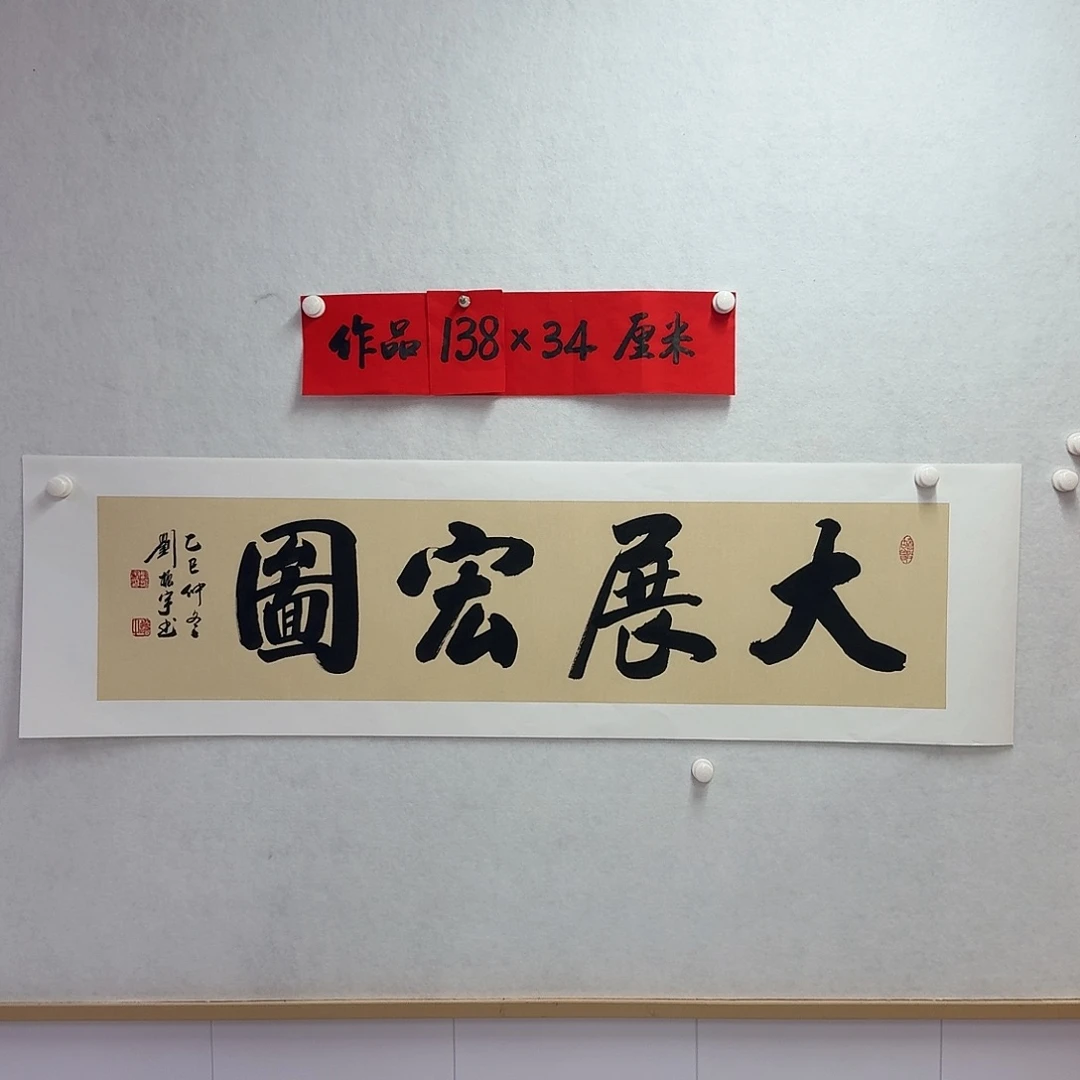 作品 138×34 厘米
大展宏圖
乙巳仲冬
劉振宇书